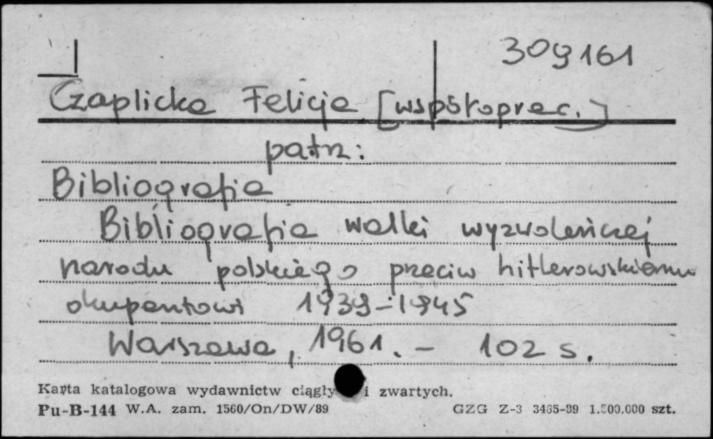 309161
Czaplicka Felicja [współoprac.]
patrz:
Bibliografia
Bibliografia walki wyzwoleńczej
narodu polskiego przeciw hitlerowskiemu
okupantowi 1939-1945
Warszawa, 1961. - 102 s.
Karta katalogowa wydawnictw ciągły i zwartych.
Pu-B-144 W.A. zam. 1560/On/DW/89 GZG Z-3 3465-89 1.500.000 szt.